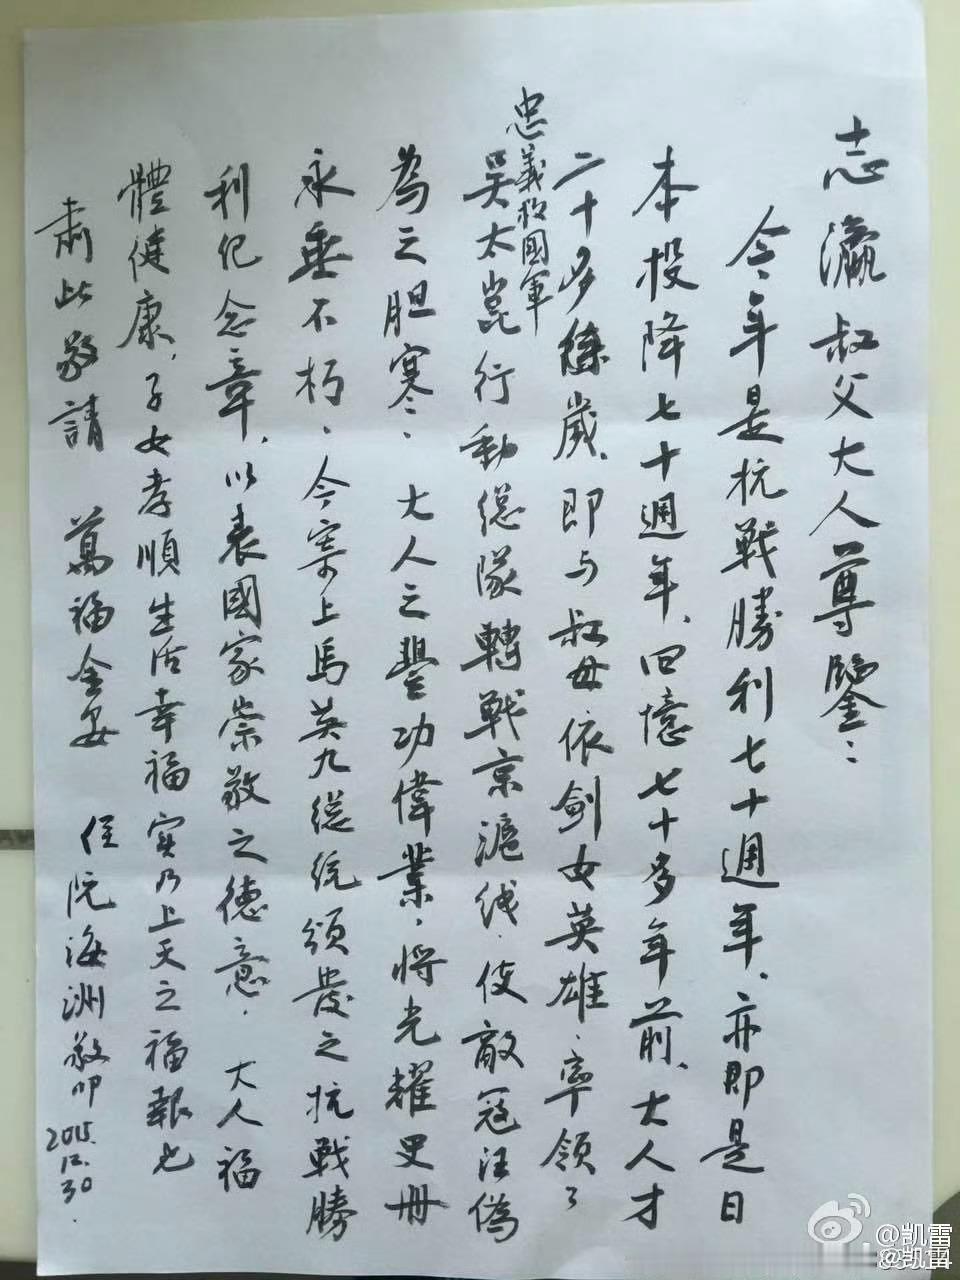 志瀛叔父大人尊鑒：
今年是抗戰勝利七十週年、亦即是日
本投降七十週年、回憶七十多年前、大人才
二十多歲、即与叔母依劍女英雄、率領了
忠義救國軍
吴太崑行動總隊轉戰京滬线、使敵冠汪偽
為之胆寒、大人之豐功偉業、将光耀史册
永垂不朽、今寄上馬英九總統頒發之抗戰勝
利纪念章、以表國家崇敬之德意、大人福
體健康、子女孝順生活幸福实乃上天之福報也
肅此敬請 萬福金安
侄阮海洲敬叩
2015.12.30.
@凯雷
@凯雷